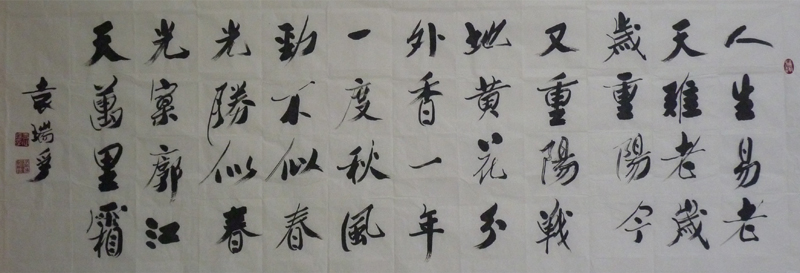 人生易老
天難老歲
歲重陽今
又重陽戰
地黃花分
外香一年
一度秋風
勁不似春
光勝似春
光寥廓江
天萬里霜
袁瑞